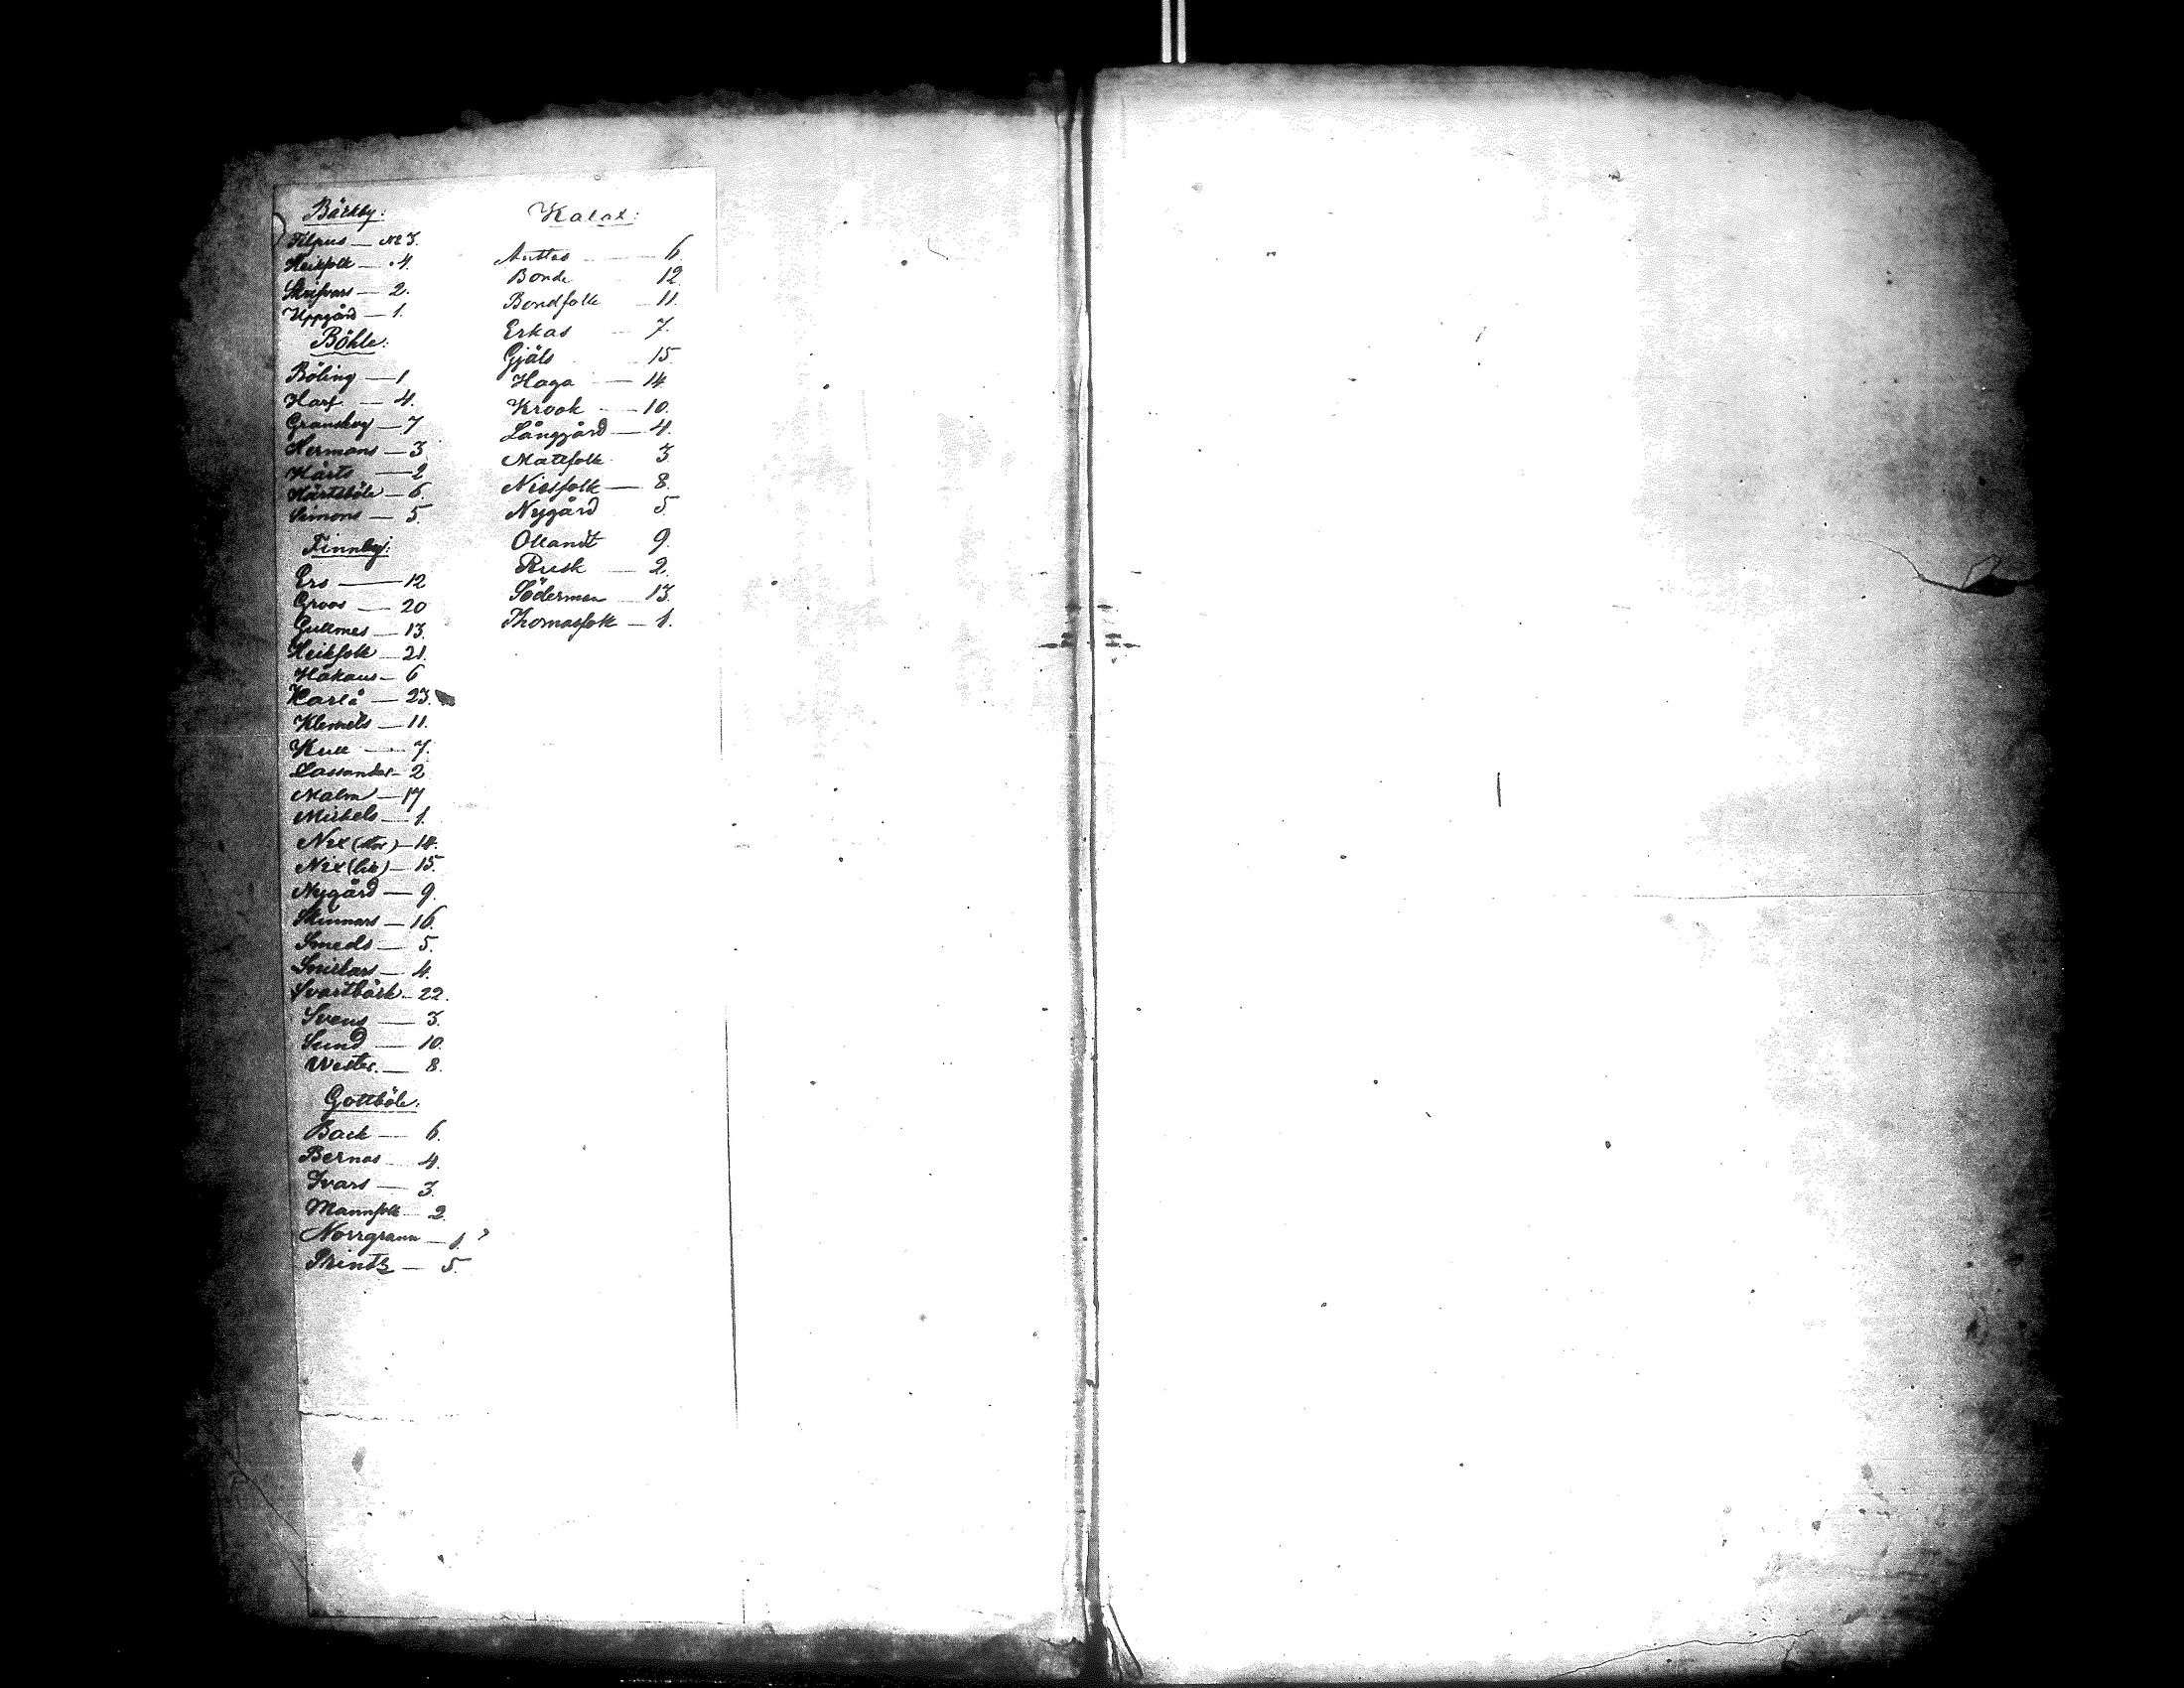 Bäckby:
Filpus — № 3.
Heikfolk — " 4.
Skrifvars — 2.
Uppgård — 1.
Böhle:
Böling — 1
Harf — 4.
Granskog — 7
Hermans — 3
Härts — 2
Härtsböle — 6.
Simons — 5.
Finnby:
Ers — 12
Groos — 20
Gullmes — 13.
Heikfolk — 21.
Håkans — 6
Karlå — 23.
Klemets — 11.
Kull — 7.
Lassandas — 2
Malm — 17
Mickels — 1.
Nix (stor) — 14.
Nix (lill) — 15.
Nygård — 9.
Skinnars — 16.
Smeds — 5.
Snickars — 4.
Svartbäck — 22.
Svens — 3.
Sund — 10.
Wester — 8.
Gottböle:
Back — 6.
Bernas — 4.
Ivars — 3.
Mannfolk — 2.
Norrgrann — 1. ?
Printz — 5.
Kalax:
Anttas — 6.
Bonde 12.
Bondfolk — 11.
Erkas — 7.
Gjäls 15.
Haga — 14
Krook — 10.
Långgård — 4.
Mattfolk 3
Nissfolk — 8.
Nygård 5
Ollandt 9.
Rusk — 2.
Söderman — 13.
Thomasfolk — 1.